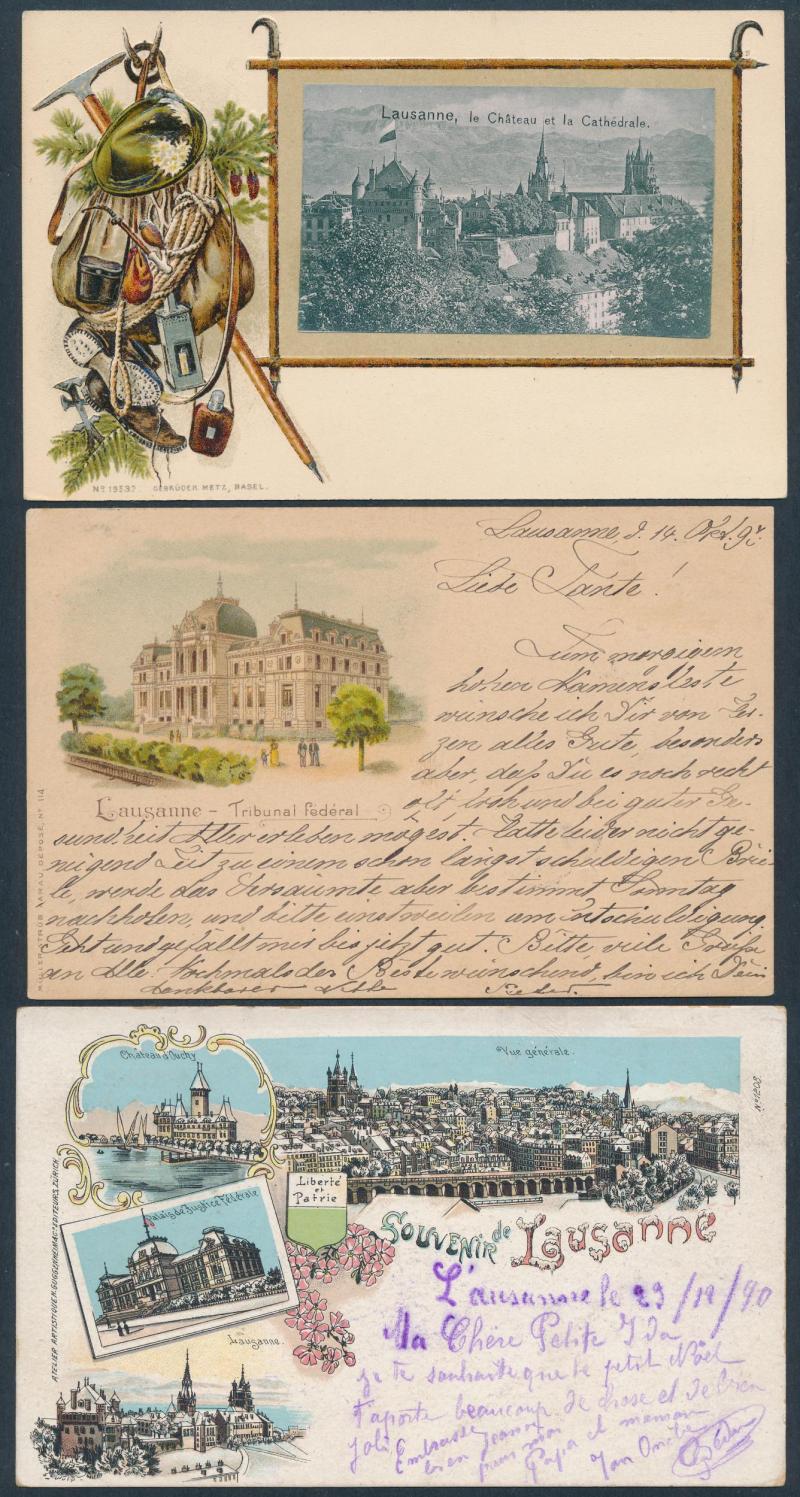 Lausanne, le Château et la Cathédrale.
Nº 19537. GEBRÜDER METZ, BASEL.
Lausanne, d. 14. Okt.
Liebe Tante!
Zum morgigem
hohen Namensfeste
wünsche ich Dir von Her-
zen alles Gute, besonders
aber, daß Du es noch recht
oft, froh und bei guter Ge-
sundheit Aller erleben mögest. Hatte leider nicht ge-
nügend Zeit zu einem schon längst schuldigen Brie-
fe, werde das Versäumte aber bestimmt Sonntag
nachholen, und bitte einstweilen um Entschuldigung.
Geht und gefällt mir bis jetzt gut. Bitte viele Grüße
an Alle. Nochmals das Beste wünschend, bin ich Dein
dankbarer Neffe
Lausanne - Tribunal fédéral
MÜLLER & TRÜB AARAU DÉPOSÉ, Nº 114
Château d'Ouchy
Vue générale.
Nº 1208
Liberté
et
Patrie
Souvenir de Lausanne
Palais de Justice Fédérale
Lausanne.
ATELIER ARTISTIQUE H. GUGGENHEIM & Cº EDITEURS, ZÜRICH
L'ausanne le 23/12/90
Ma Chère Petite Ida
je te souhaite que le petit Noël
t'aporte beaucoup de chose et de bien
Joli Embrasse
bien Jeanne
pour moi
Papa et maman
Ton Oncle